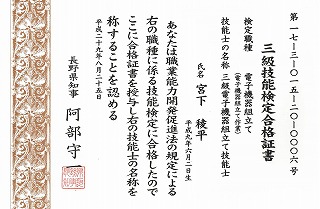 第一七-三-〇一五-二〇-〇〇〇六号
三級技能検定合格証書
検定職種 電子機器組立て
(電子機器組立て作業)
技能士の名称 三級電子機器組立て技能士
氏名 宮下 稜平
平成九年六月二日生
あなたは職業能力開発促進法の規定による
右の職種に係る技能検定に合格したので
ここに合格証書を授与し右の技能士の名称を
称することを認める
平成二十九年八月二十五日
長野県知事 阿部守一